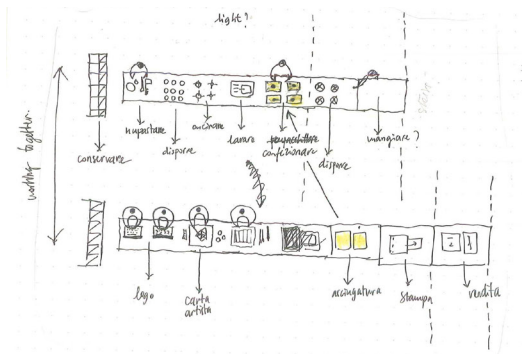 light?
working together.
conservare
impastare
disporre
cucinare
lavare
confezionare
disporre
mangiare?
logo
carta
artista
asciugatura
stampa
vendita